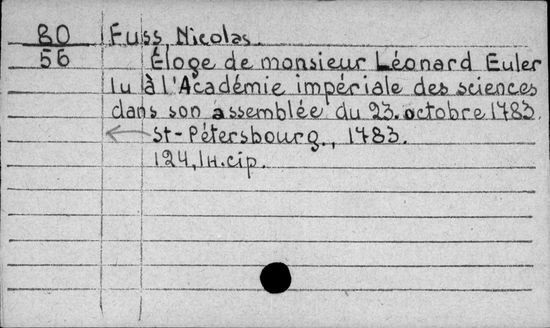 80 Fuss Nicolas.
56 Éloge de monsieur Léonard Euler
lu à l'Académie impériale des sciences
dans son assemblée du 23. octobre 1783.
St-Pétersbourg., 1783.
124, 1н.cip.